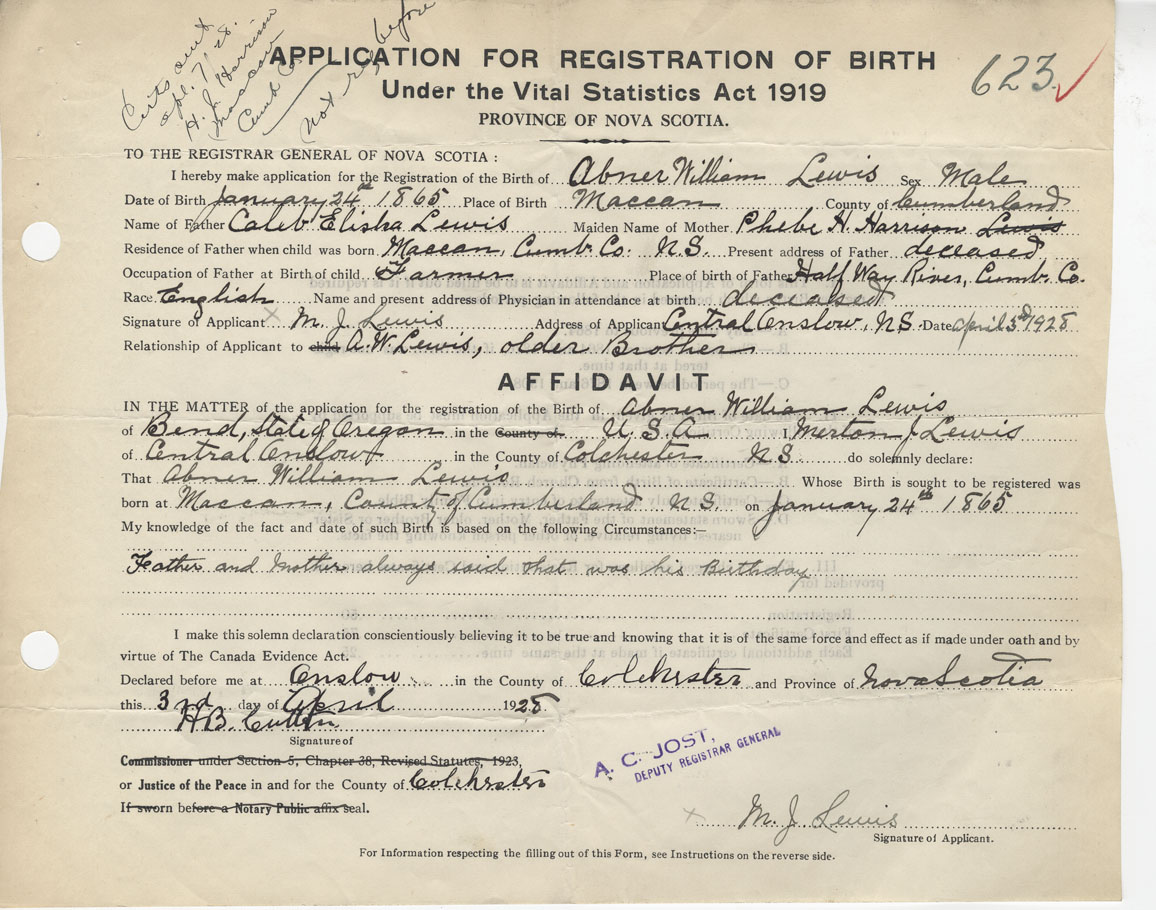 Certs sent
Apl. 7/28.
H. J. Harrison
Maccan
Cumb Co
Not reg before
623
APPLICATION FOR REGISTRATION OF BIRTH
Under the Vital Statistics Act 1919
PROVINCE OF NOVA SCOTIA.
TO THE REGISTRAR GENERAL OF NOVA SCOTIA :
I hereby make application for the Registration of the Birth of Abner William Lewis Sex Male
Date of Birth January 24th 1865 Place of Birth Maccan County of Cumberland
Name of Father Caleb Elisha Lewis Maiden Name of Mother Phebe H. Harrison Lewis
Residence of Father when child was born Maccan, Cumb. Co. N.S. Present address of Father deceased
Occupation of Father at Birth of child Farmer Place of birth of Father Half Way River, Cumb. Co.
Race English Name and present address of Physician in attendance at birth deceased
Signature of Applicant x M. J. Lewis Address of Applicant Central Onslow, N.S. Date April 3rd 1928
Relationship of Applicant to child A.W. Lewis, older Brother
AFFIDAVIT
IN THE MATTER of the application for the registration of the Birth of Abner William Lewis
of Bend, State of Oregon in the County of U.S.A I Merton J Lewis
of Central Onslow in the County of Colchester N.S. do solemnly declare:
That Abner William Lewis Whose Birth is sought to be registered was
born at Maccan, County of Cumberland N.S. on January 24th 1865
My knowledge of the fact and date of such Birth is based on the following Circumstances:—
Father and Mother always said that was his Birthday
I make this solemn declaration conscientiously believing it to be true and knowing that it is of the same force and effect as if made under oath and by
virtue of The Canada Evidence Act.
Declared before me at Onslow in the County of Colchester and Province of Nova Scotia
this 3rd day of April 1928
H.B. Cutten
Signature of
Commissioner under Section 5, Chapter 38, Revised Statutes, 1923,
or Justice of the Peace in and for the County of Colchester
If sworn before a Notary Public affix seal.
A. C. JOST,
DEPUTY REGISTRAR GENERAL
x M. J. Lewis
Signature of Applicant.
For Information respecting the filling out of this Form, see Instructions on the reverse side.